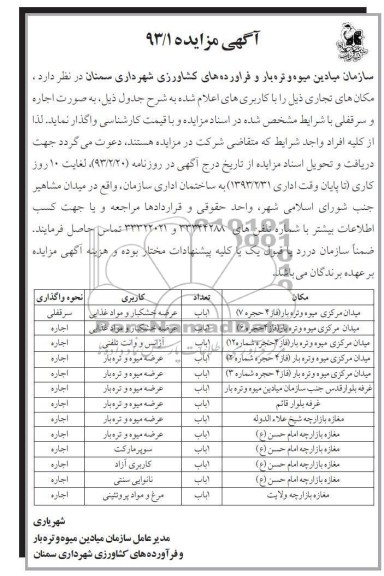 آگهی مزایده ۹۳/۱
سازمان میادین میوه و تره بار و فرآورده های کشاورزی شهرداری سمنان در نظر دارد ،
مکان های تجاری ذیل را با کاربری های اعلام شده به شرح جدول ذیل، به صورت اجاره
و سرقفلی با شرایط مشخص شده در اسناد مزایده و با قیمت کارشناسی واگذار نماید. لذا
از کلیه افراد واجد شرایط که متقاضی شرکت در مزایده هستند، دعوت می گردد جهت
دریافت و تحویل اسناد مزایده از تاریخ درج آگهی در روزنامه (۹۳/۲/۲۰)، لغایت ۱۰ روز
کاری (تا پایان وقت اداری ۱۳۹۳/۲/۳۱) به ساختمان اداری سازمان، واقع در میدان مشاهیر
جنب شورای اسلامی شهر، واحد حقوقی و قراردادها مراجعه و یا جهت کسب
اطلاعات بیشتر با شماره تلفن های ۳۳۳۴۴۲۸۸ و ۳۳۳۲۲۰۲۱ تماس حاصل فرمایند.
ضمناً سازمان دررد یا قبول یک یا کلیه پیشنهادات مختار بوده و هزینه آگهی مزایده
بر عهده برندگان می باشد.
مکان تعداد کاربری نحوه واگذاری
میدان مرکزی میوه و تره بار (فاز ۴ حجره ۷) ۱باب عرضه خشکبار و مواد غذایی سرقفلی
میدان مرکزی میوه و تره بار (فاز ۴ حجره ۶) ۱باب عرضه خشکبار و مواد غذایی اجاره
میدان مرکزی میوه و تره بار (فاز ۴ حجره شماره ۱۲) ۱باب آژانس و وانت تلفنی اجاره
میدان مرکزی میوه و تره بار (فاز ۴ حجره شماره ۲) ۱باب عرضه میوه و تره بار اجاره
میدان مرکزی میوه و تره بار (فاز ۴ حجره شماره ۳) ۱باب عرضه میوه و تره بار اجاره
غرفه بلوار قدس جنب سازمان میادین میوه و تره بار ۱باب عرضه میوه و تره بار اجاره
غرفه بلوار قائم ۱باب عرضه میوه و تره بار اجاره
مغازه بازارچه شیخ علاء الدوله ۱باب عرضه میوه و تره بار اجاره
مغازه بازارچه امام حسن (ع) ۱باب عرضه میوه و تره بار اجاره
مغازه بازارچه امام حسن (ع) ۱باب سوپرمارکت اجاره
مغازه بازارچه امام حسن (ع) ۱باب کاربری آزاد اجاره
مغازه بازارچه امام حسن (ع) ۱باب نانوایی سنتی اجاره
مغازه بازارچه ولایت ۱باب مرغ و مواد پروتئینی اجاره
شهریاری
مدیرعامل سازمان میادین میوه و تره بار
و فرآورده های کشاورزی شهرداری سمنان